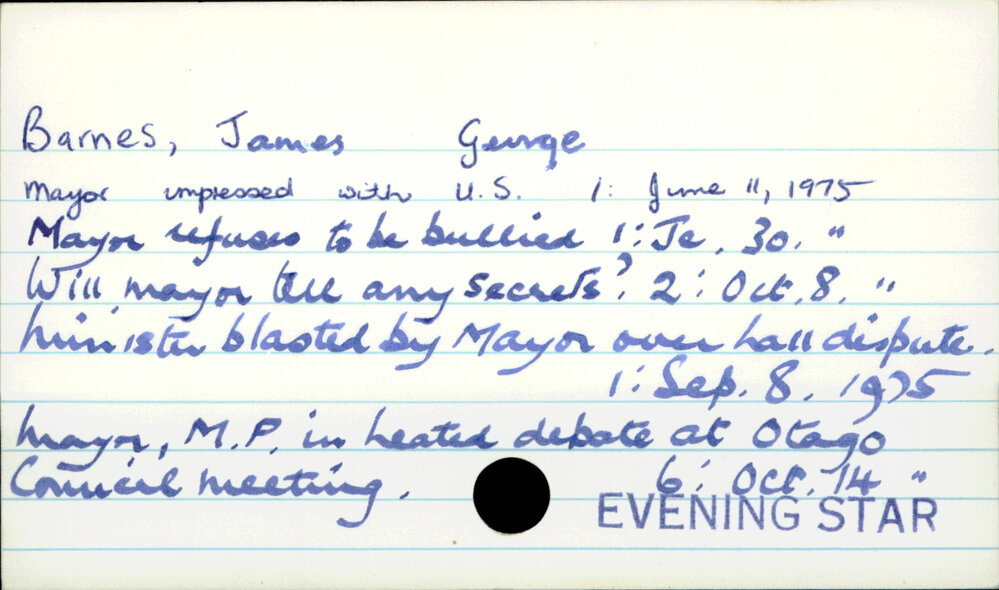 Barnes, James George
Mayor impressed with U.S. 1: June 11, 1975
Mayor refuses to be bullied 1: Je. 30. "
Will mayor tell any secrets? 2: Oct. 8. "
Minister blasted by Mayor over hall dispute.
1: Sep. 8. 1975
Mayor, M.P. in heated debate at Otago
Council meeting. 6: Oct. 14 "
EVENING STAR